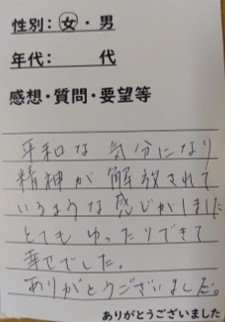 性別：女・男
年代：　　代
感想・質問・要望等
平和な気分になり
精神が解放されて
いるような感じがしました
とてもゆったりできて
幸せでした。
ありがとうございました。
ありがとうございました